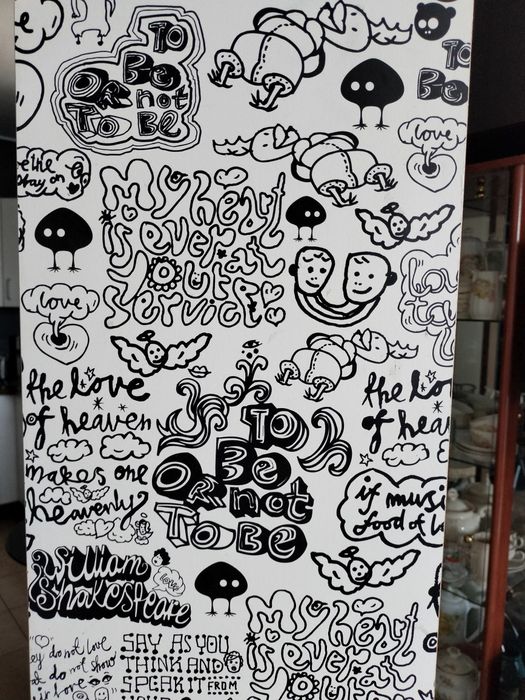 TO
BE
OR not
TO BE
TO
BE
love
My heart
is ever at
your
service
love
the love
of heaven
makes one
heavenly
TO
BE
OR not
TO BE
the lo
of heav
if musi
food of l
William
Shakespeare
do not love
do not show
love
SAY AS YOU
THINK AND
SPEAK IT FROM
My heart
is ever at